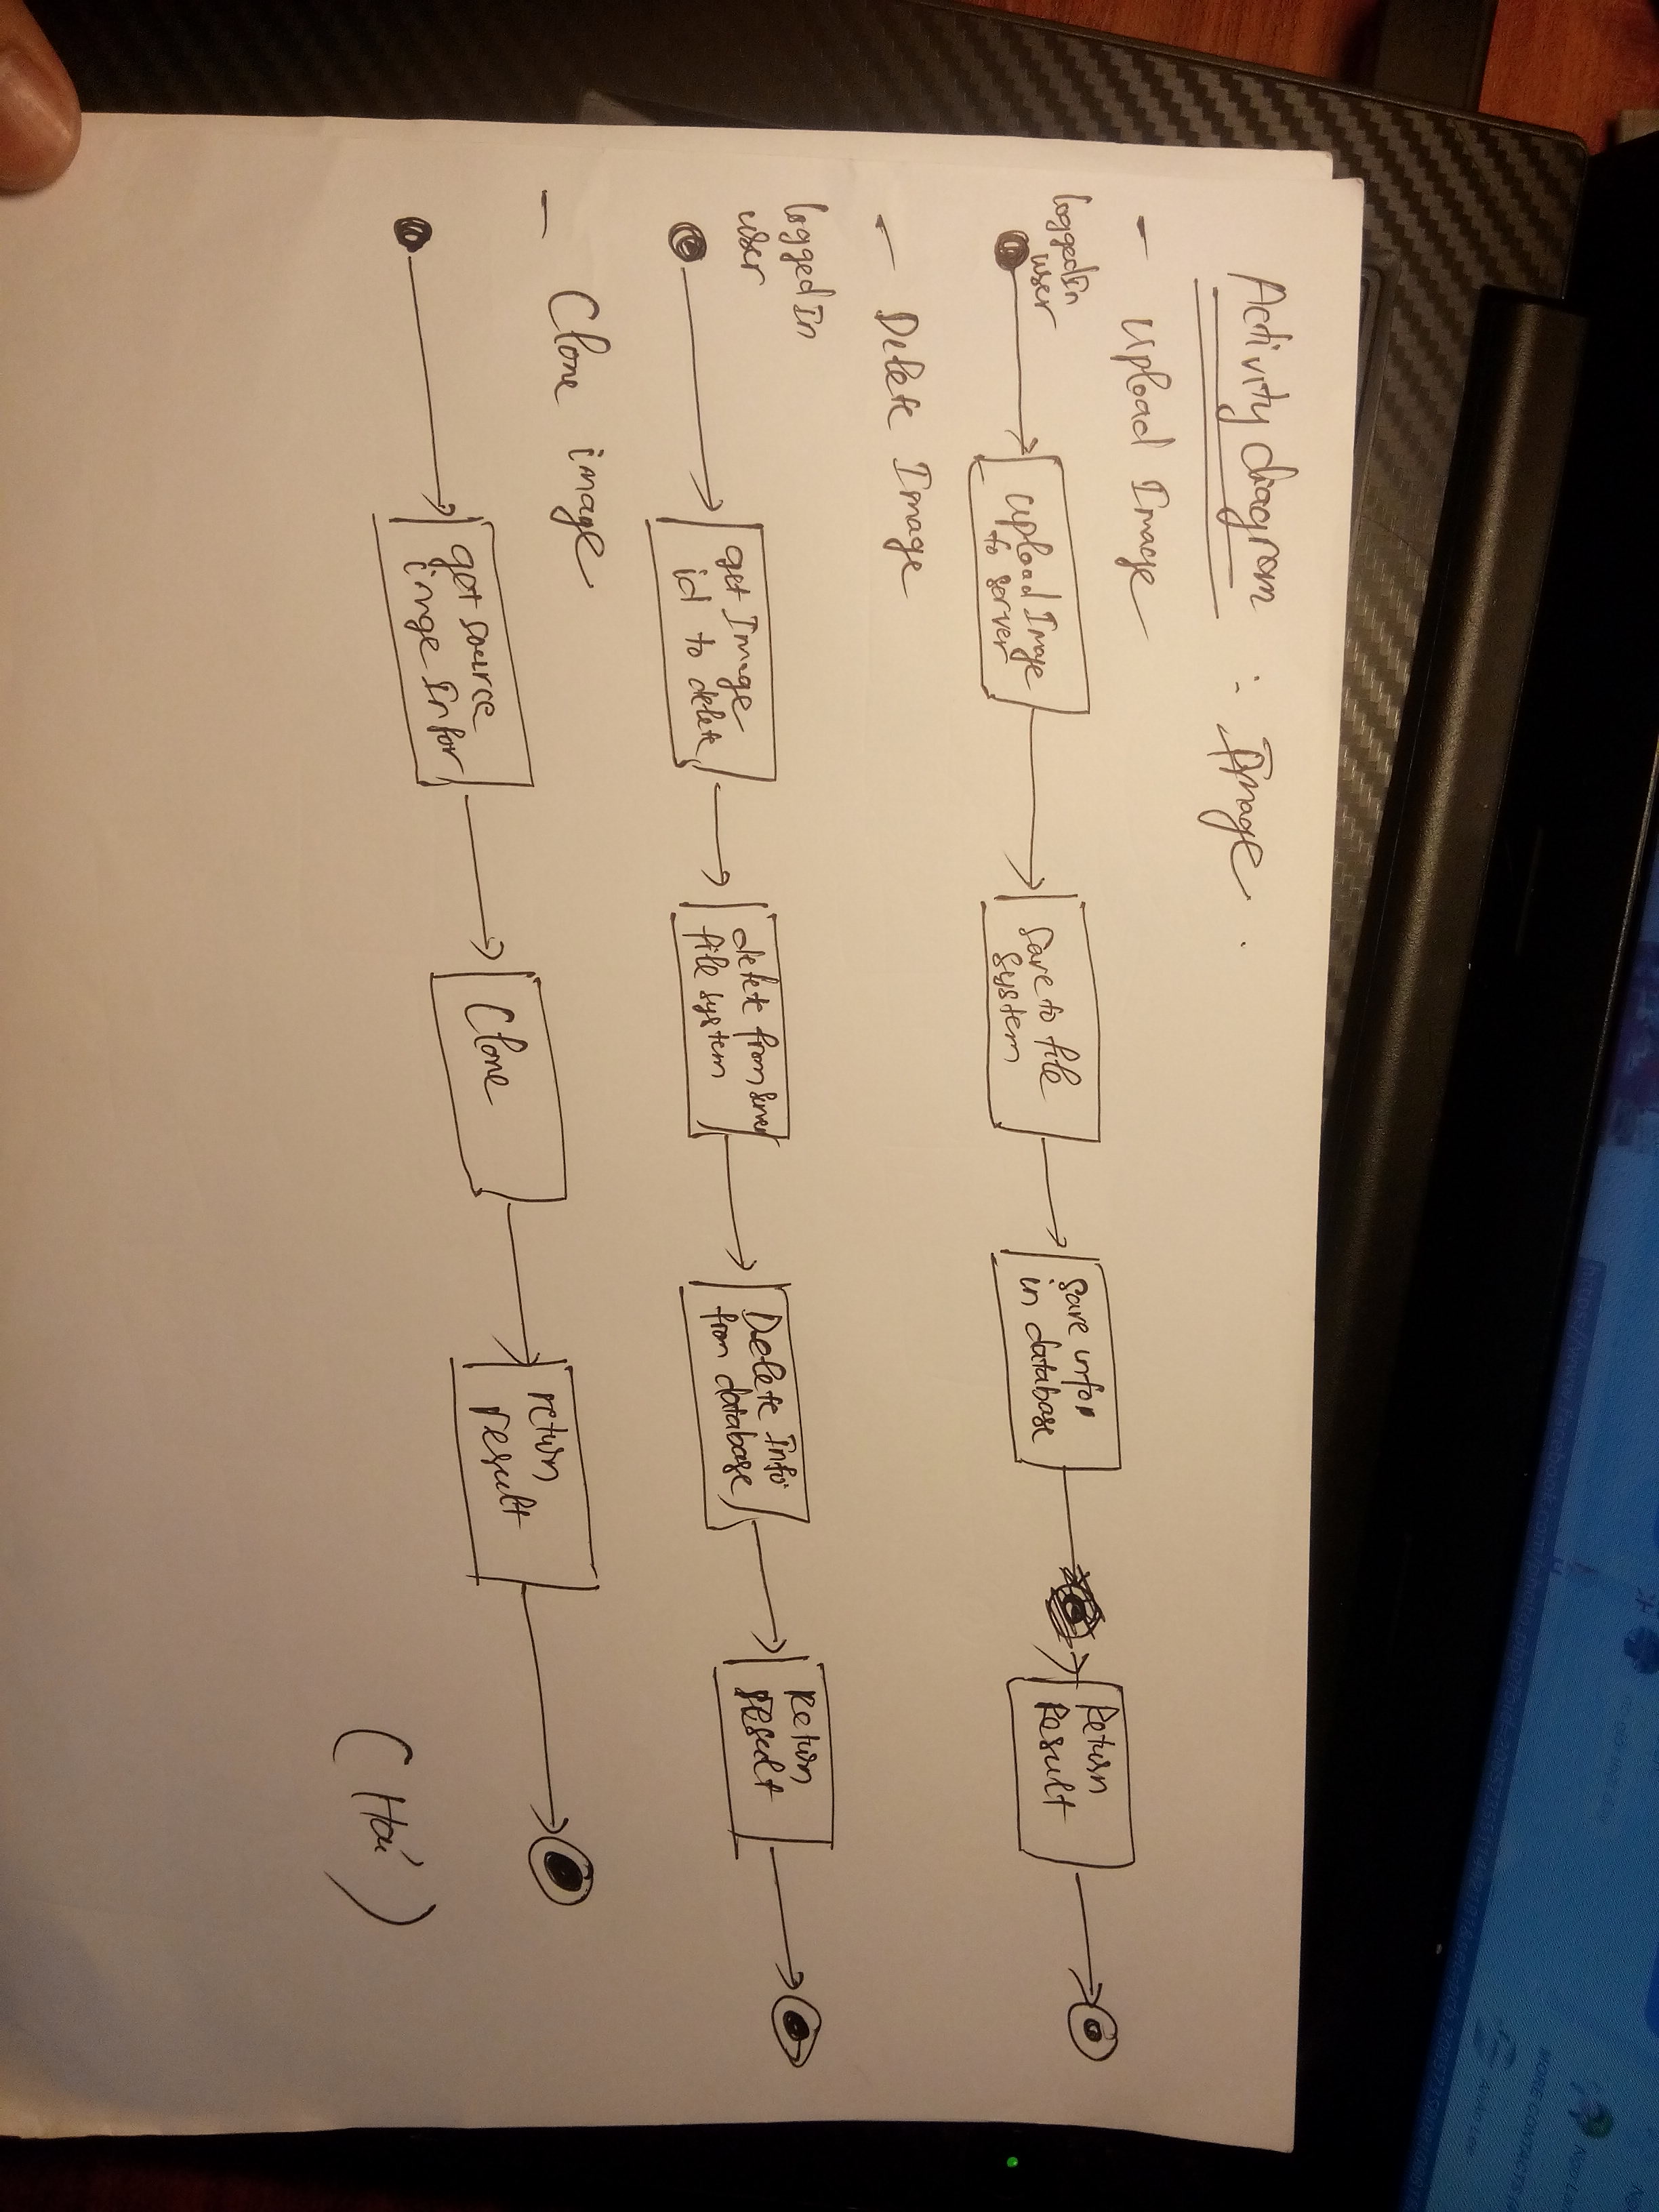 Activity diagram : Image.
- Upload Image
logged In
user
Upload Image
to server
Save to file
system
Save infor
in database
Return
Result
- Delete Image
logged In
user
get Image
id to delete
delete from server
file system
Delete Info
from database
Return
result
- Clone image
get source
image Infor
Clone
return
result
MORE CONTACTS